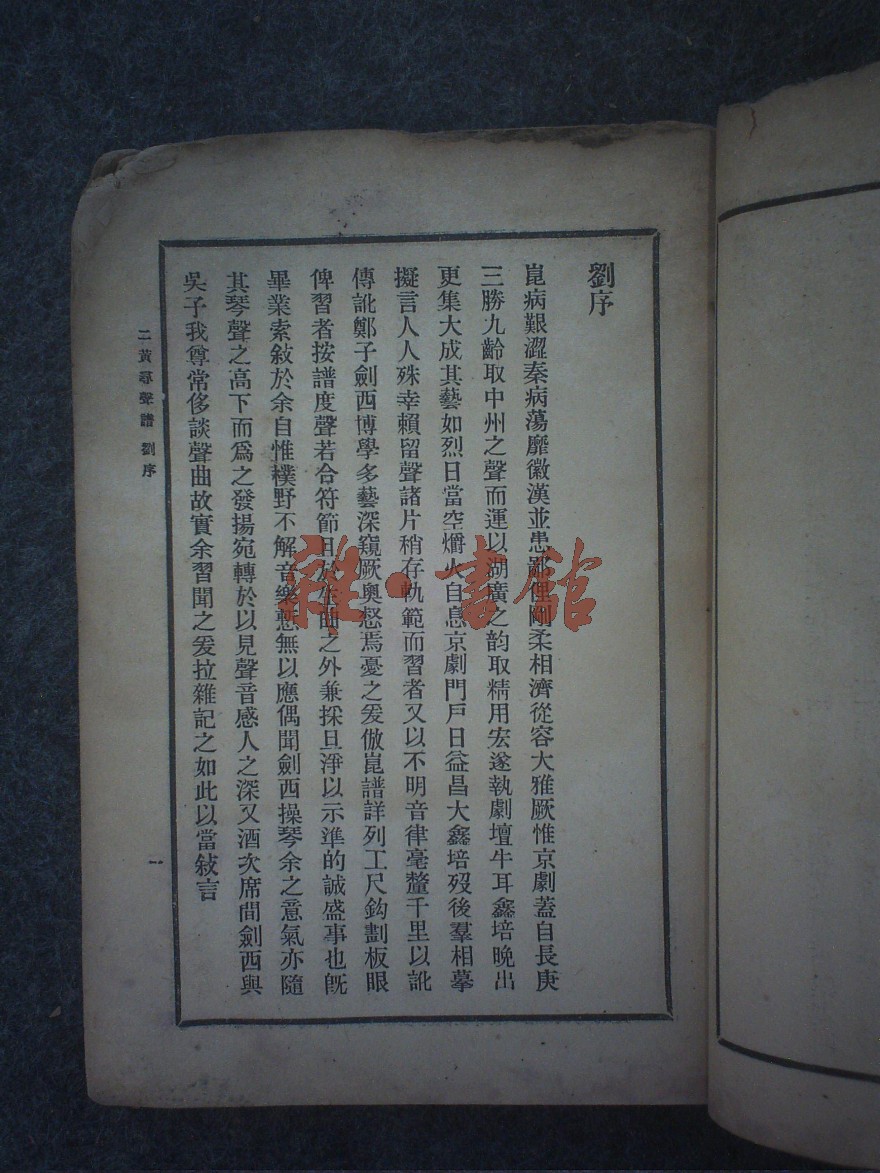 劉序
崑病艱澀秦病蕩靡徽漢並患鄙俚剛柔相濟從容大雅厥惟京劇蓋自長庚
三勝九齡取中州之聲而運以湖廣之韵取精用宏遂執劇壇牛耳鑫培晚出
更集大成其藝如烈日當空爝火自息京劇門戶日益昌大鑫培歿後羣相摹
擬言人人殊幸賴留聲諸片稍存軌範而習者又以不明音律毫釐千里以訛
傳訛鄭子劍西博學多藝深窺厥奧惄焉憂之爰倣崑譜詳列工尺鈎劃板眼
俾習者按譜度聲若合符節且於生曲之外兼採旦淨以示準的誠盛事也旣
畢業索敍於余自惟樸野不解音樂慙無以應偶聞劍西操琴余之意氣亦隨
其琴聲之高下而爲之發揚宛轉於以見聲音感人之深又酒次席間劍西與
吳子我尊常侈談聲曲故實余習聞之爰拉雜記之如此以當敍言
二黃尋聲譜 劉序
一
雜·書館